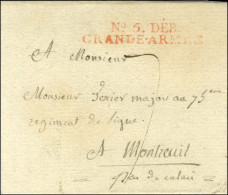 No. 5. DÉB.
GRANDE-ARMÉE
A Monsieur
Monsieur Ferior major au 75em
regiment de ligne.
A Montreuil
pas de calais